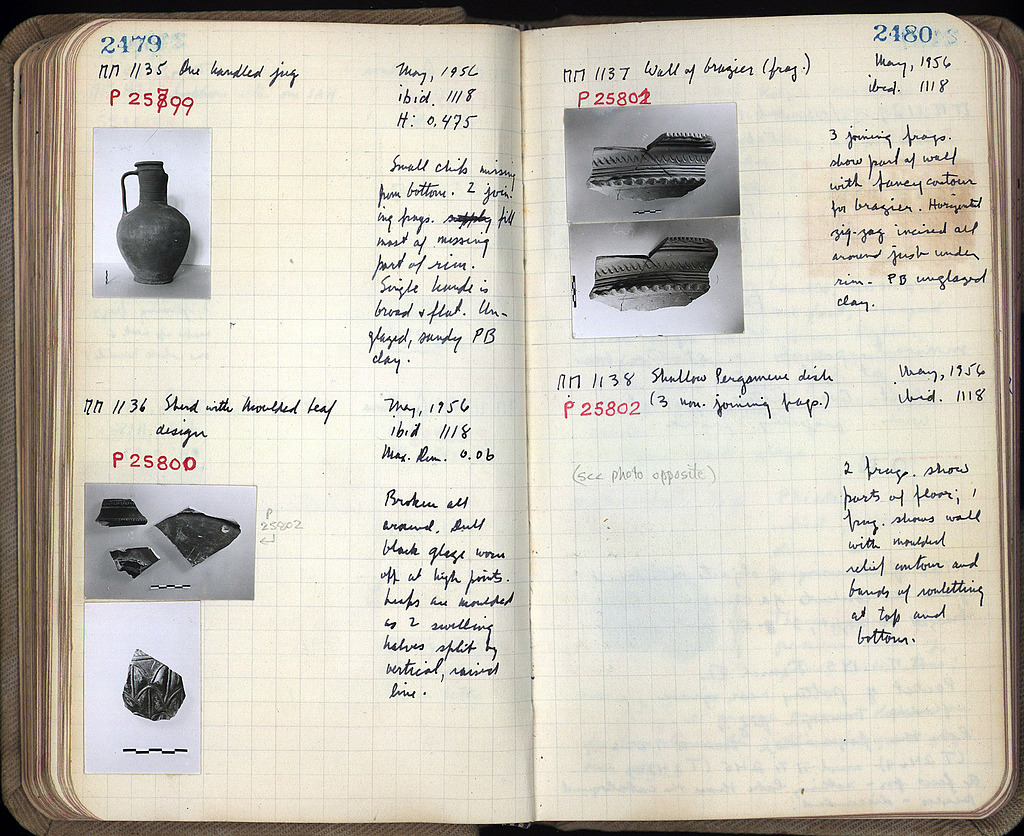 2479
MM 1135 One handled jug
P 25799
May, 1956
ibid. 1118
H: 0.475
Small chips missing
from bottom. 2 join-
ing frags. fill
most of missing
part of rim.
Single handle is
broad & flat. Un-
glazed, sandy PB
clay.
MM 1136 Sherd with Moulded Leaf
design
P 25800
May, 1956
ibid 1118
Max. Dim. 0.06
P
25802
Broken all
around. Dull
black glaze worn
off at high points.
Leafs are moulded
as 2 swelling
halves split by
vertical, raised
line.
2480
MM 1137 Wall of brazier (frag.)
P 25801
May, 1956
ibid. 1118
3 joining frags.
show part of wall
with fancy contour
for brazier. Horizontal
zig-zag incised all
around just under
rim. PB unglazed
clay.
MM 1138 Shallow Pergamene dish
(3 non. joining frags.)
P 25802
May, 1956
ibid. 1118
(see photo opposite)
2 frags. show
parts of floor; 1
frag. shows wall
with moulded
relief contour and
bands of rouletting
at top and
bottom.